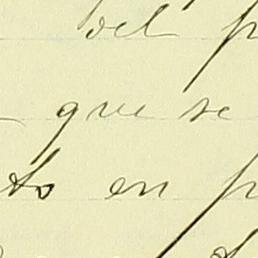 del p
que se
to en p